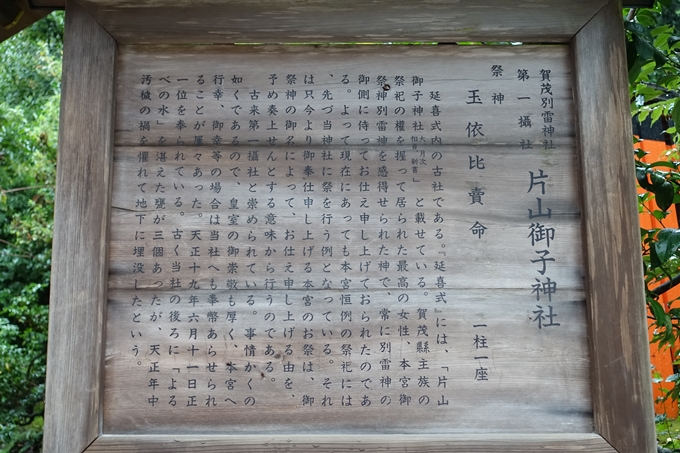 賀茂別雷神社
第一攝社
片山御子神社
祭神
玉依比賣命
一柱一座
延喜式内の古社である。『延喜式』には、「片山
御子神社 大 月次 相嘗 新嘗」と載せている。賀茂縣主族の
祭祀の權を握って居られた最高の女性、本宮御
祭神別雷神を感得せられた神で、常に別雷神の
御側に侍ってお仕え申し上げておられたのであ
る。よって現在にあっても本宮恒例の祭祀には
、先づ当神社に祭を行う例となっている。それ
は只今より御奉仕申し上げる本宮のお祭は、御
祭神の御名によって、お仕え申し上げる由を、
予め奏上せんとする意味から行うのである。
古来第一攝社と崇められている。事情かくの
如くであるので、皇室の御崇敬も厚く、本宮へ
行幸、御幸等の場合は当社へも奉幣あらせられ
ることが屡々あった。天正十九年六月十一日正
一位を奉られている。古く当社の後ろに「よる
べの水」を湛えた甕が三個あったが、天正年中
汚穢の禍を懼れて地下に埋没したという。